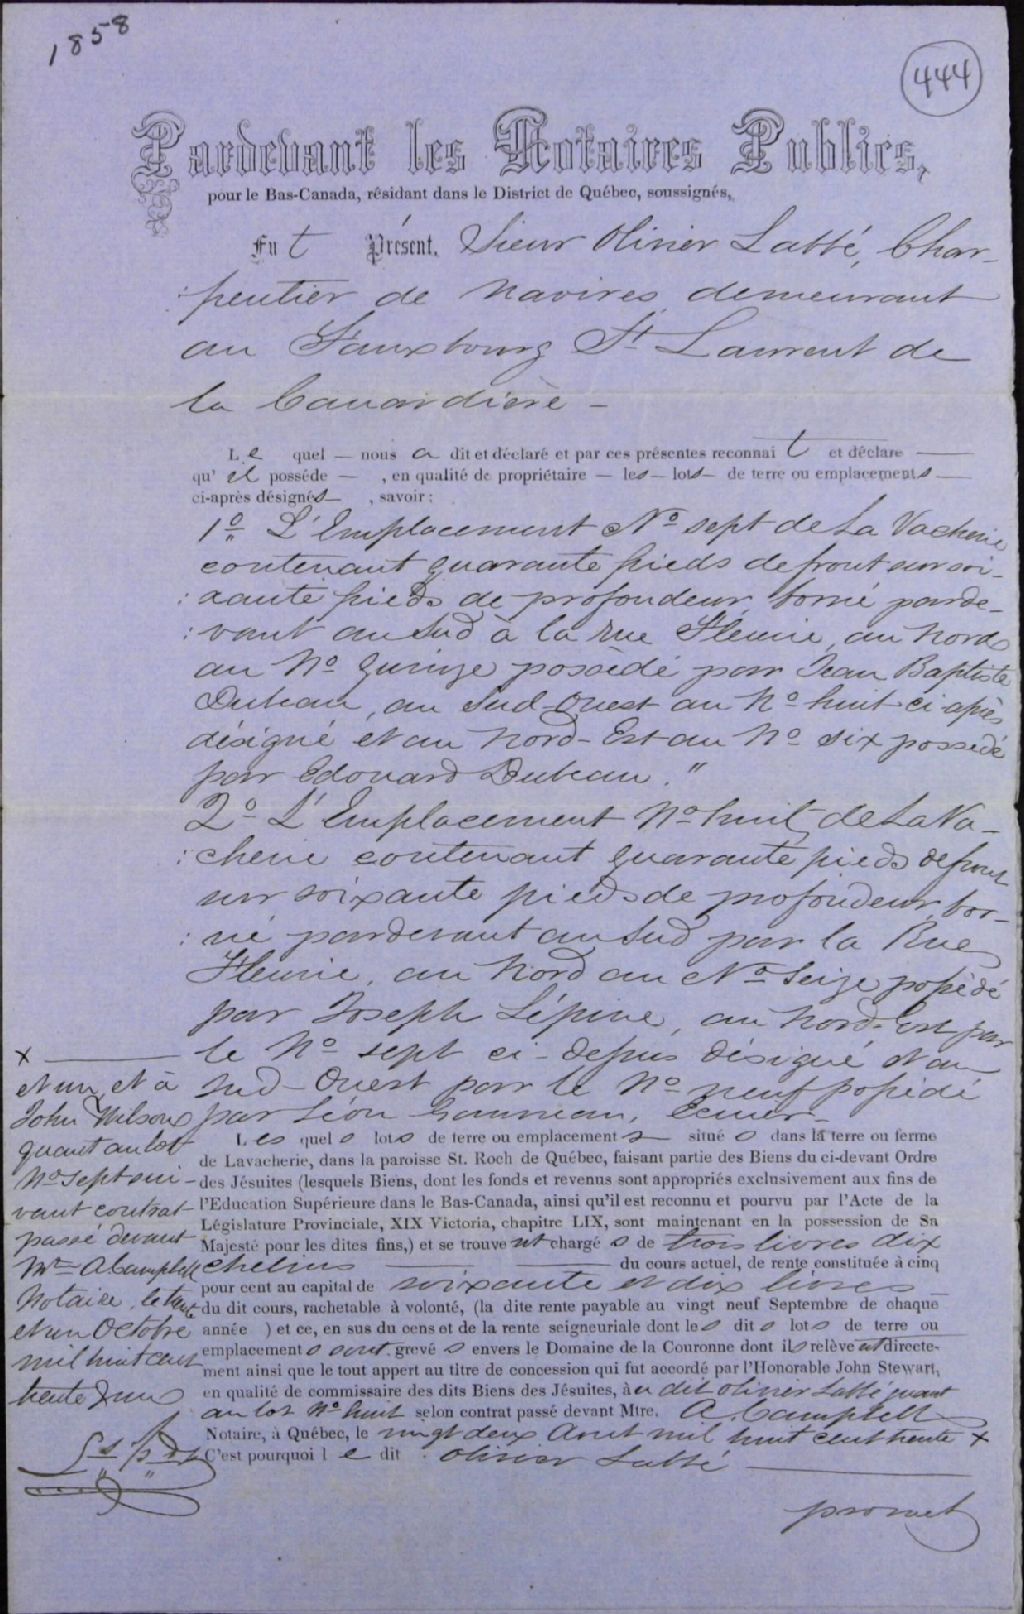 1858
444
Pardevant les Notaires Publics,
pour le Bas-Canada, résidant dans le District de Québec, soussignés,
Fut Présent, Sieur Olivier Labbé, Char-
:pentier de navires demeurant
au Fauxbourg St Laurent de
la Canardière -
Le quel — nous a dit et déclaré et par ces présentes reconnait et déclare
qu'il posséde — , en qualité de propriétaire — les — lots — de terre ou emplacements —
ci-après désignés — , savoir :
1o L'Emplacement No sept de La Vacherie
contenant quarante pieds de front sur soi-
:xante pieds de profondeur, borné parde-
:vant au Sud à la rue Fleurie, au Nord
au No quinze possèdé par Jean Baptiste
Dubeau, au Sud-Ouest au No huit ci-après
désigné et au Nord-Est au No six possedé
par Edouard Dubeau."
2o L'Emplacement No huit de La Va-
:cherie contenant quarante pieds de front
sur soixante pieds de profondeur, bor-
:né pardevant au Sud par la Rue
Fleurie, au Nord au No Seize possédé
par Joseph Lépine, au Nord-Est par
le No sept ci-dessus désigné et au
Sud-Ouest par le No neuf possédé
par Léon Gauvreau, Ecuier -
Lesquels lots de terre ou emplacements situés dans la terre ou ferme
de Lavacherie, dans la paroisse St. Roch de Québec, faisant partie des Biens du ci-devant Ordre
des Jésuites (lesquels Biens, dont les fonds et revenus sont appropriés exclusivement aux fins de
l'Education Supérieure dans le Bas-Canada, ainsi qu'il est reconnu et pourvu par l'Acte de la
Législature Provinciale, XIX Victoria, chapitre LIX, sont maintenant en la possession de Sa
Majesté pour les dites fins,) et se trouvent chargés de trois livres dix
chelins — du cours actuel, de rente constituée à cinq
pour cent au capital de soixante et dix livres —
du dit cours, rachetable à volonté, (la dite rente payable au vingt neuf Septembre de chaque
année ) et ce, en sus du cens et de la rente seigneuriale dont les dits lots de terre ou
emplacements sont grevés envers le Domaine de la Couronne dont ils relèvent directe-
ment ainsi que le tout appert au titre de concession qui fut accordé par l'Honorable John Stewart,
en qualité de commissaire des dits Biens des Jésuites, au dit Olivier Labbé quant
au lot No huit selon contrat passé devant Mtre. A. Campbell
Notaire, à Québec, le vingt deux Avril mil huit cent trente x
C'est pourquoi le dit Olivier Labbé —
promet
x —
et un, et à
John Wilson
quant au lot
No sept sui-
vant contrat
passé devant
Mtre A Campbell
Notaire, le trente
et un Octobre
mil huit cent
trente & un